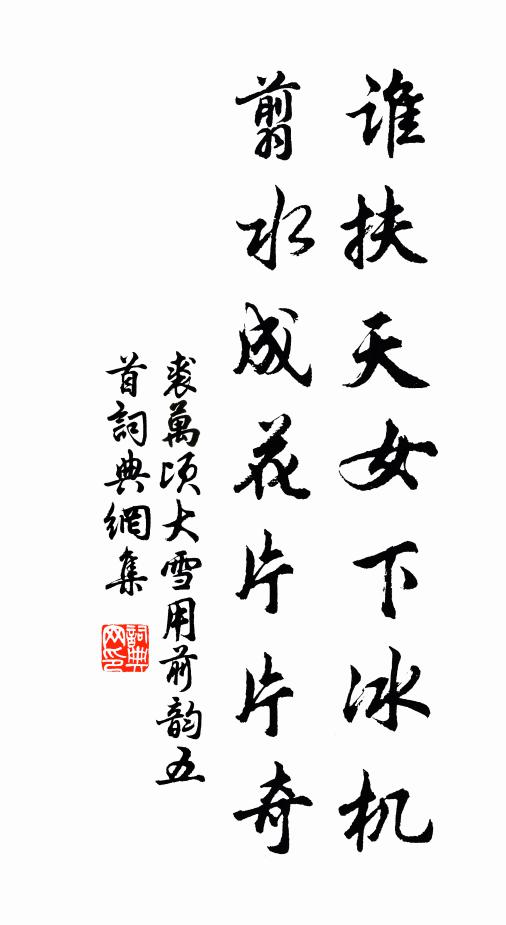 谁扶天女下冰机
翦水成花片片奇
裘萬顷大雪用前韵五
首詞典網集
詞典
网印